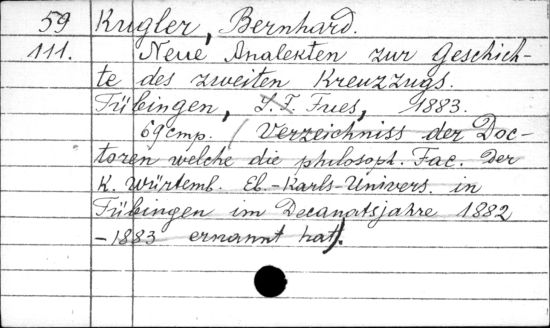 59 Kugler, Bernhard.
111. Neue Analekten zur Geschich-
te des zweiten Kreuzzugs.
Tübingen, Fues, 1883.
69 cmp. (Verzeichniss der Doc-
toren welche die philosoph. Fac. der
K. Würtemb. Eb.-Karls-Univers. in
Tübingen im Decanatsjahre 1882
-1883 ernannt hat).